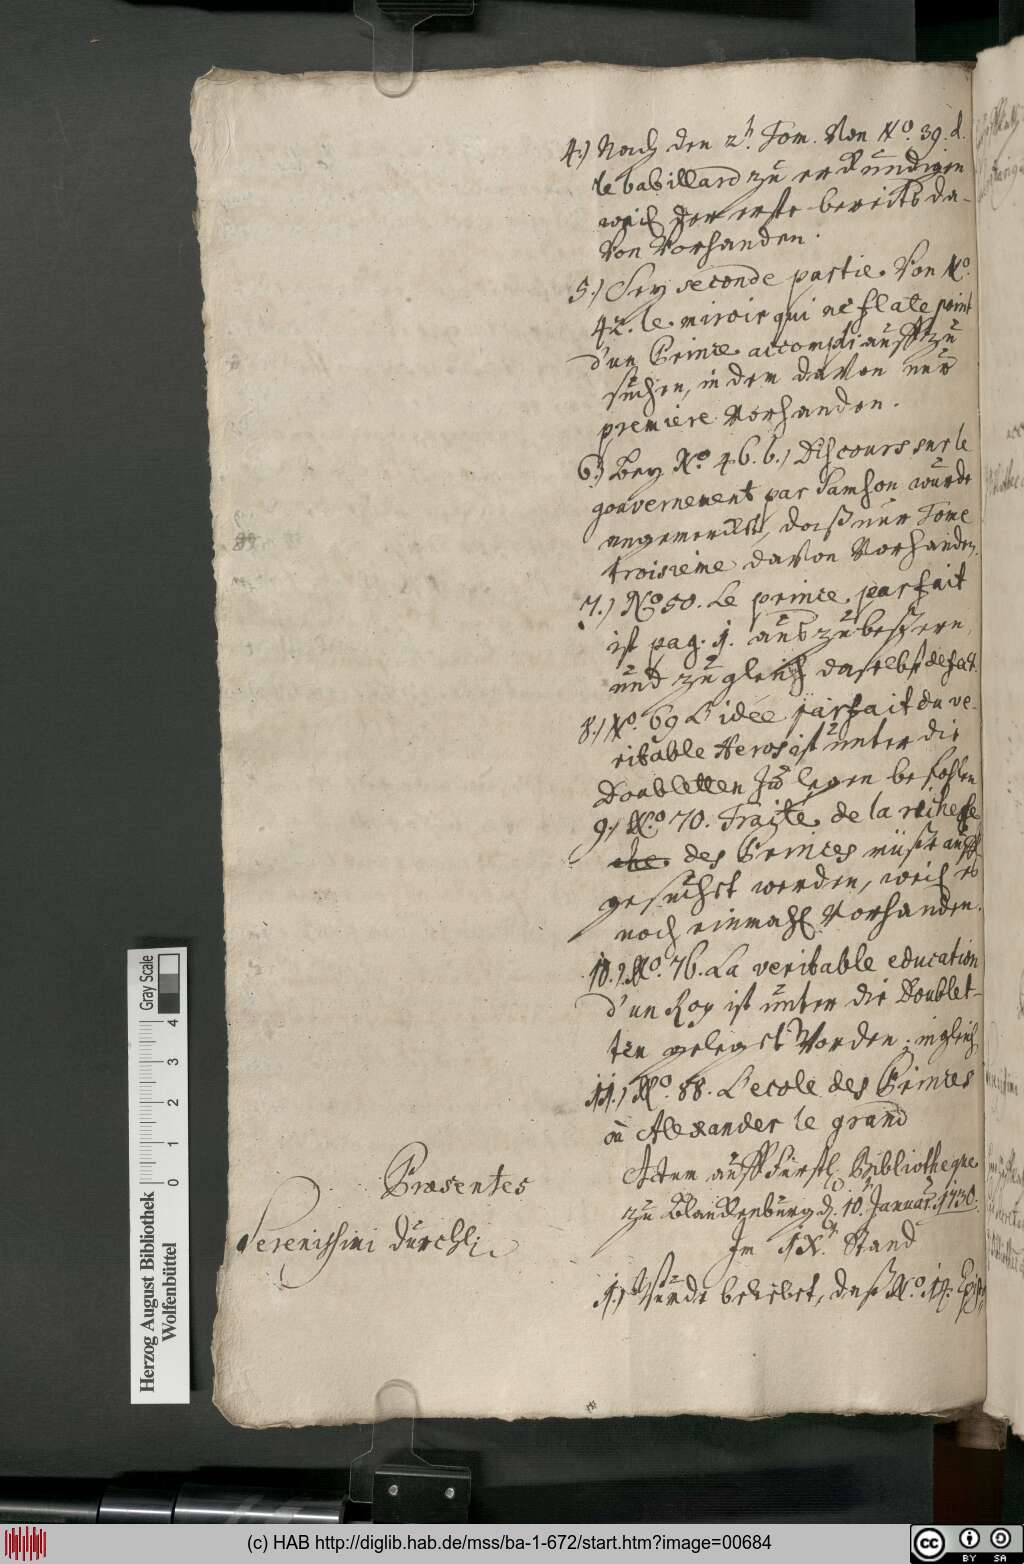 4.) Nach den 2.t Tom. von No. 39. d.
le babillard zu erkundigen
weil der erste bereits da-
von vorhanden.
5.) Sey seconde partie. von No.
42. le miroir qui ne flate point
d'un Prince accompli auffzu
suchen, in dem davon nur
premiere vorhanden.
6.) Bey No. 46. b.) Discours sur le
gouvernement par Samson wurde
angemerckt, daß nur Tome
troisieme davon vorhanden.
7.) No. 50. Le prince parfait
ist pag. 1. auszubeßern,
und zugleich daselbst defect.
8.) No. 69 L'idée parfait du ve-
ritable Heros ist unter die
Doubletten zu legen befohlen
9.) No. 70. Traité de la richesse
des Princes müste auff
gesucht werden, weil es
noch einmahl vorhanden.
10.) No. 76. La veritable education
d'un Roy ist unter die Doublet-
ten gelegt worden, ingleich
11.) No. 88. L'ecole des Princes
où Alexander le grand
Actum auff Fürstl. Bibliotheque
zu Blanckenburg d. 10. Januar. 1730.
Præsentes
Im IX.t Stand
Serenissimi Durchl.
1.) Wurde beliebet, daß No. 14.
Gray Scale
4
3
2
1
0
Herzog August Bibliothek
Wolfenbüttel
(c) HAB http://diglib.hab.de/mss/ba-1-672/start.htm?image=00684
cc
BY SA